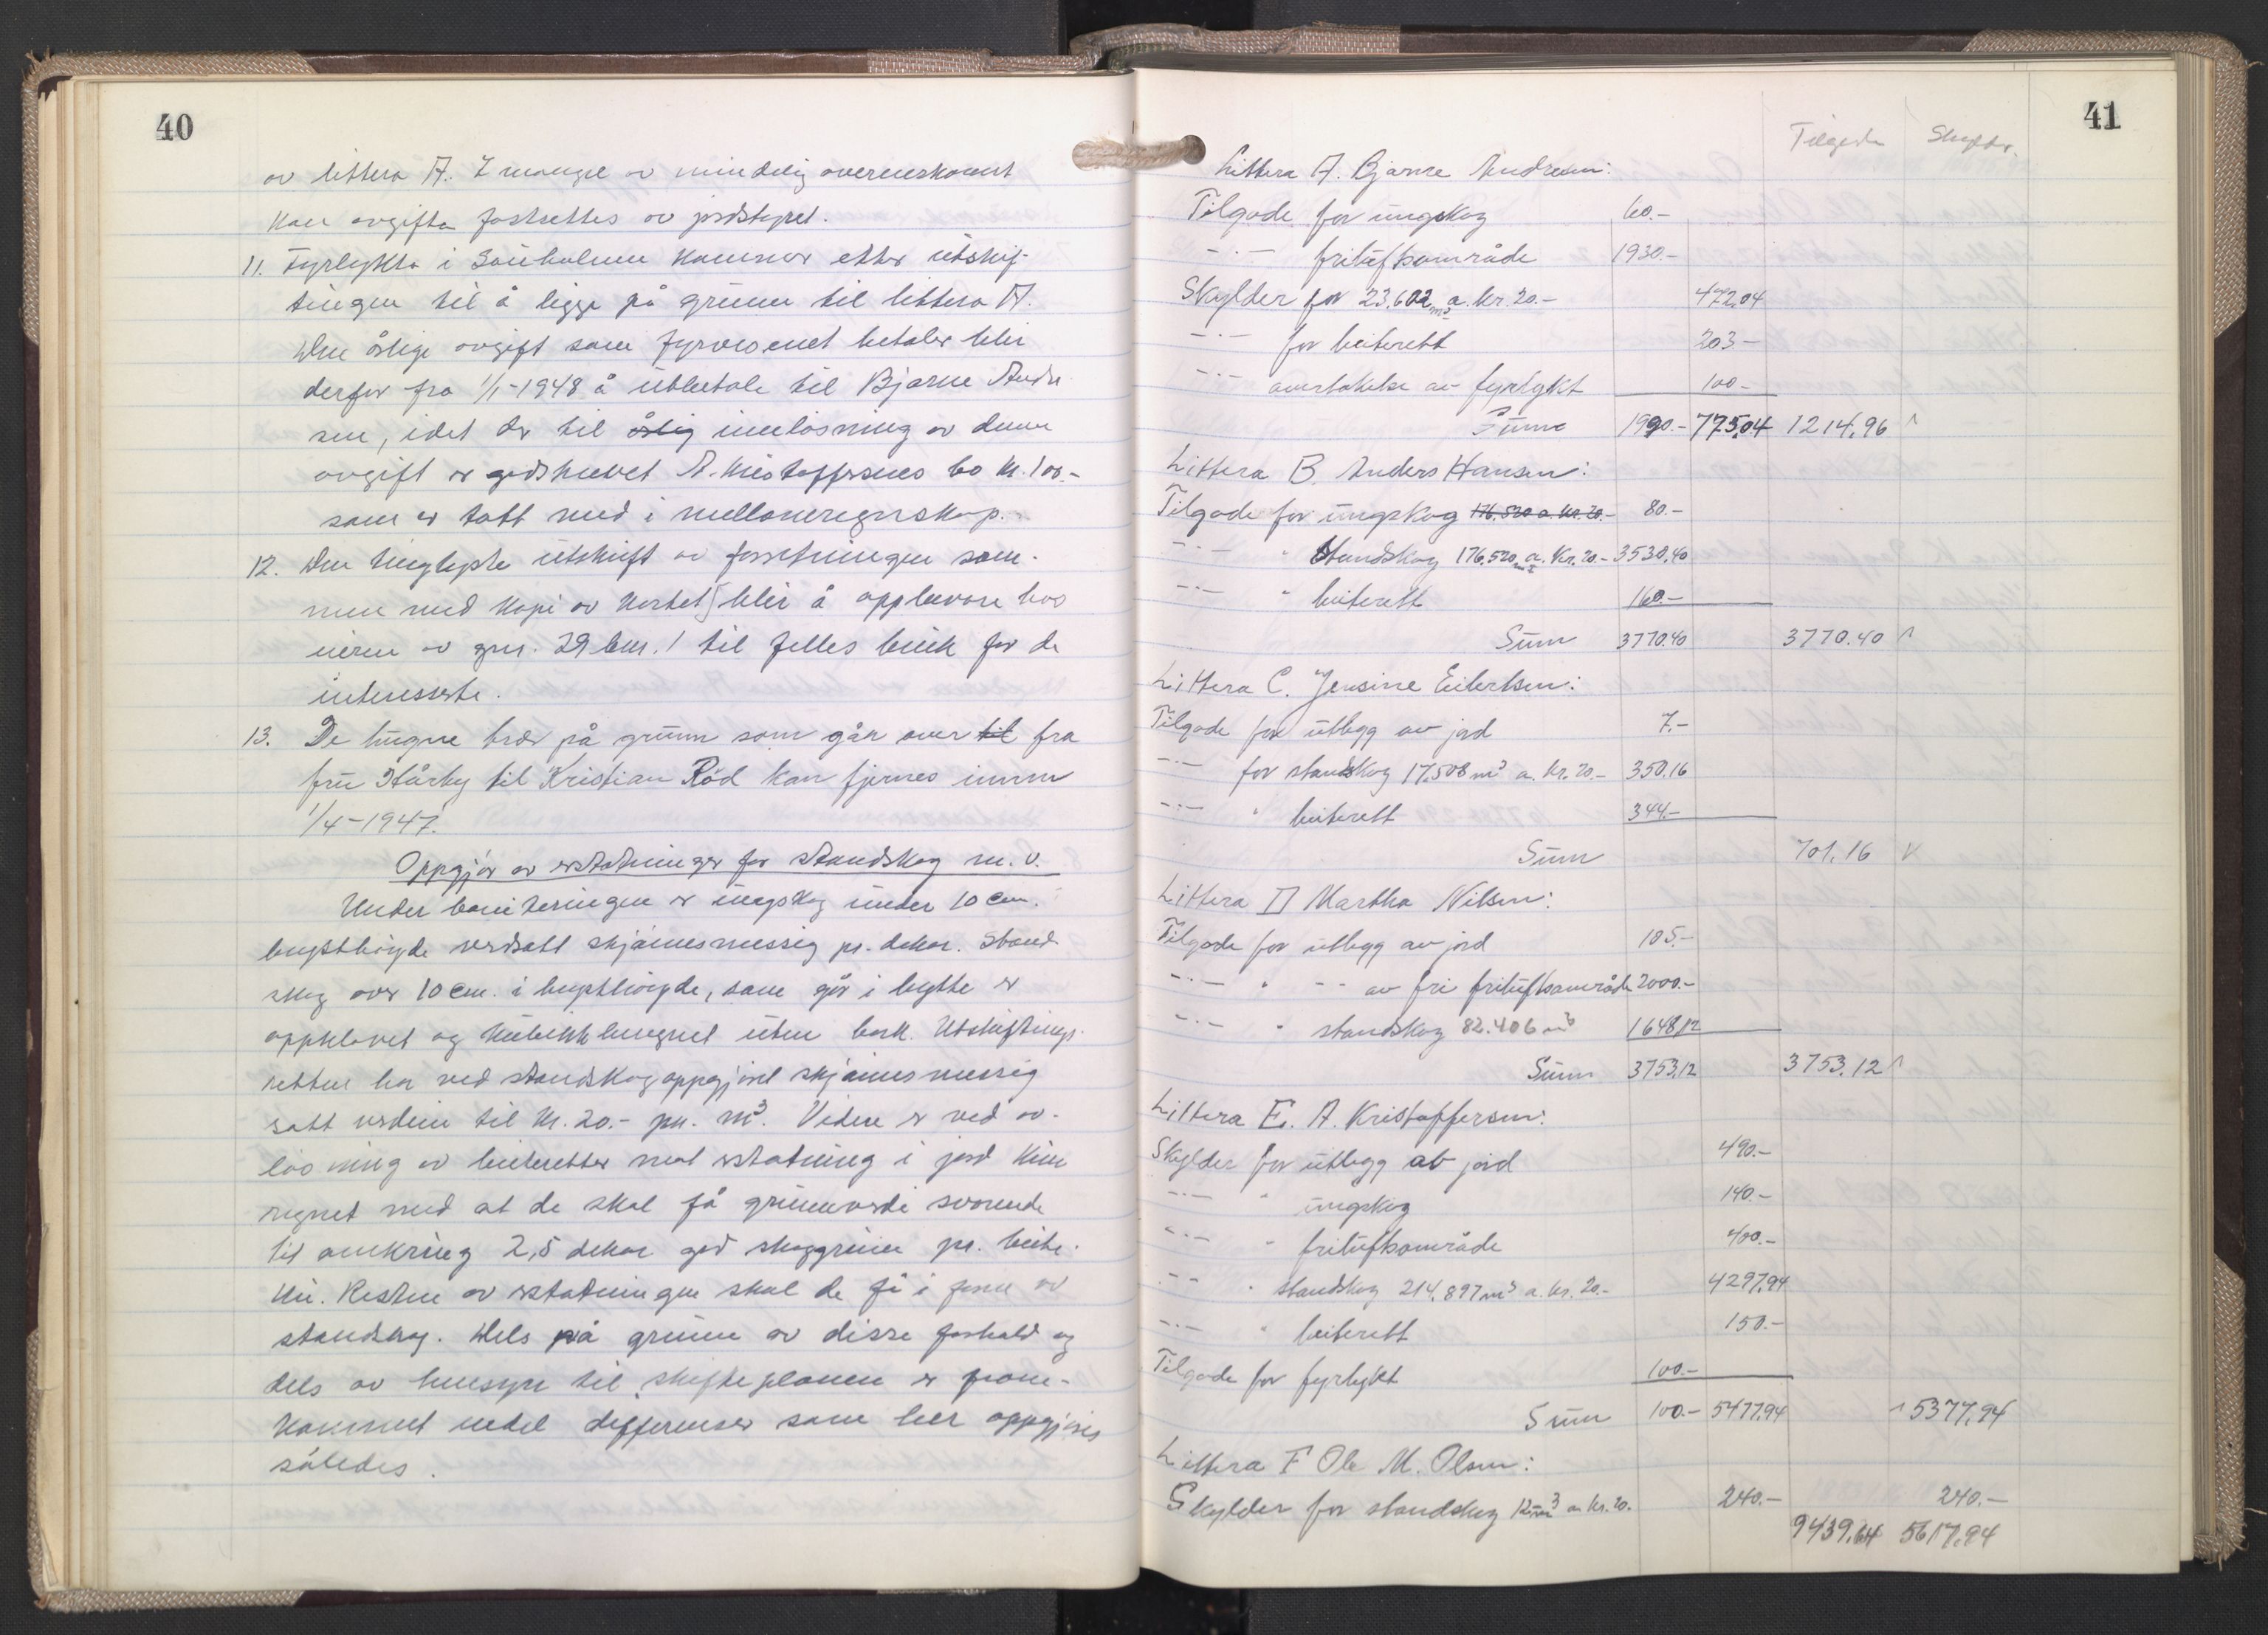 40
av littera A. I mangel av mindelig overenskomst
kan avgiften fastsettes av jordstyret.
11. Fyrlykta i Sauholmen kommer etter utskif-
tingen til å ligge på grunn til littera A.
Den årlige avgift som fyrvesenet betaler blir
derfor fra 1/1-1948 å utbetale til Bjarne Andre
sen, idet der til årlig innløsning av denne
avgift er godskrevet A. Kristoffersens bo kr. 100.-
som er tatt med i mellomregnskap.
12. Den tinglyste utskrift av forretningen sam-
men med kopi av kartet blir å oppbevare hos
eieren av gnr. 29 bnr. 1 til felles bruk for de
interesserte.
13. De hugne trær på grunn som går over til fra
fru Stårby til Kristian Röd kan fjernes innen
1/4-1947.
Oppgjör av erstatninger for standskog m.v.
Under boniteringen er ungskog under 10 cm.
brysthöyde verdsatt skjönnsmessig pr. dekar. Stand-
skog over 10 cm. i brysthöyde, som går i bytte er
oppklavet og kubikkberegnet uten bark. Utskiftings-
retten har ved standskogoppgjöret skjönnsmessig
satt verdien til kr. 20.- pr. m³. Videre er ved av-
løsning av beiteretter mot erstatning i jord kun
regnet med at de skal få grunnverdi svarende
til omkring 2,5 dekar god skoggrunn pr. beite-
ku. Resten av erstatningen skal de få i form av
standskog. Dels på grunn av disse forhold og
dels av hensyn til skifteplanen er frem-
kommet endel differenser som blir oppgjöres
således.
41
Tilgode Skylder.
Littera A. Bjarne Andresen:
Tilgode for ungskog 60.-
-"- friluftsområde 1930.-
Skylder for 23,602 m³ a. kr. 20.- 472.04
-"- for beiterett 203.-
-"- overtakelse av fyrlykt 100.-
Sum 1990.- 775,04 1214,96
Littera B. Anders Hansen:
Tilgode for ungskog 176.520 a. kr. 20.- 80.-
-"- " Standskog 176.520 m³ a. Kr. 20.- 3530,40
-"- " beiterett 160.-
Sum 3770.40 3770.40
Littera C. Jensine Eilertsen:
Tilgode for utlegg av jord 7.-
-"- for standskog 17,508 m³ a. kr. 20.- 350.16
-"- " beiterett 344.-
Sum 701.16
Littera D Martha Nilsen:
Tilgode for utlegg av jord 105.-
-"- " -"- av fri friluftsområde 2000.-
-"- " standskog 82.406 m³ 1648,12
Sum 3753,12 3753.12
Littera E. A. Kristoffersen:
Skylder for utlegg ab jord 490.-
-"- " ungskog 140.-
-"- " friluftsområde 400.-
-"- " standskog 214,897 m³ a. kr. 20.- 4297,94
-"- " beiterett 150.-
Tilgode for fyrlykt 100.-
Sum 100.- 5477,94 5377,94
Littera F Ole M. Olsen:
Skylder for standskog 12 m³ a kr. 20. 240.- 240.-
9439,64 5617,94